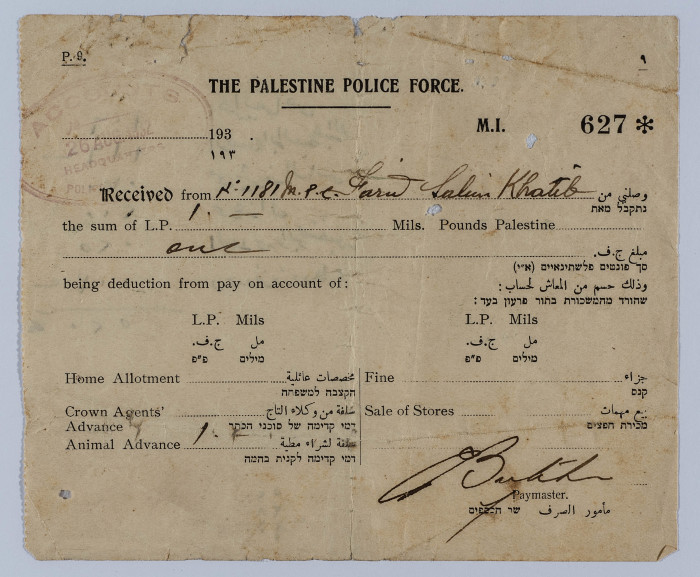 P. 9.
٩
THE PALESTINE POLICE FORCE.
M.I. 627 *
ACCOUNTS
26
HEADQUARTERS
193
١٩٣
Received from Nº 1181 M.P.C. Farid Salim Khatib وصلني من
נתקבל מאת
the sum of L.P. 1. — Mils. Pounds Palestine
one مبلغ ج.ف.
סך פונטים פלשתינאיים (א״י)
being deduction from pay on account of: وذلك حسم من المعاش لحساب:
שהורד מהמשכורת בתור פרעון בעד:
L.P. Mils L.P. Mils
مل ج.ف. مل ج.ف.
מילים פ״פ מילים פ״פ
Home Allotment مخصصات عائلية Fine جزاء
הקצבה למשפחה קנס
Crown Agents' سلفة من وكلاء التاج Sale of Stores بيع مهمات
Advance דמי קדימה של סוכני הכתר מכירת חפצים
Animal Advance 1. — سلفة لشراء مطية
דמי קדימה לקנית בהמה
Paymaster.
مأمور الصرف שר הכספים